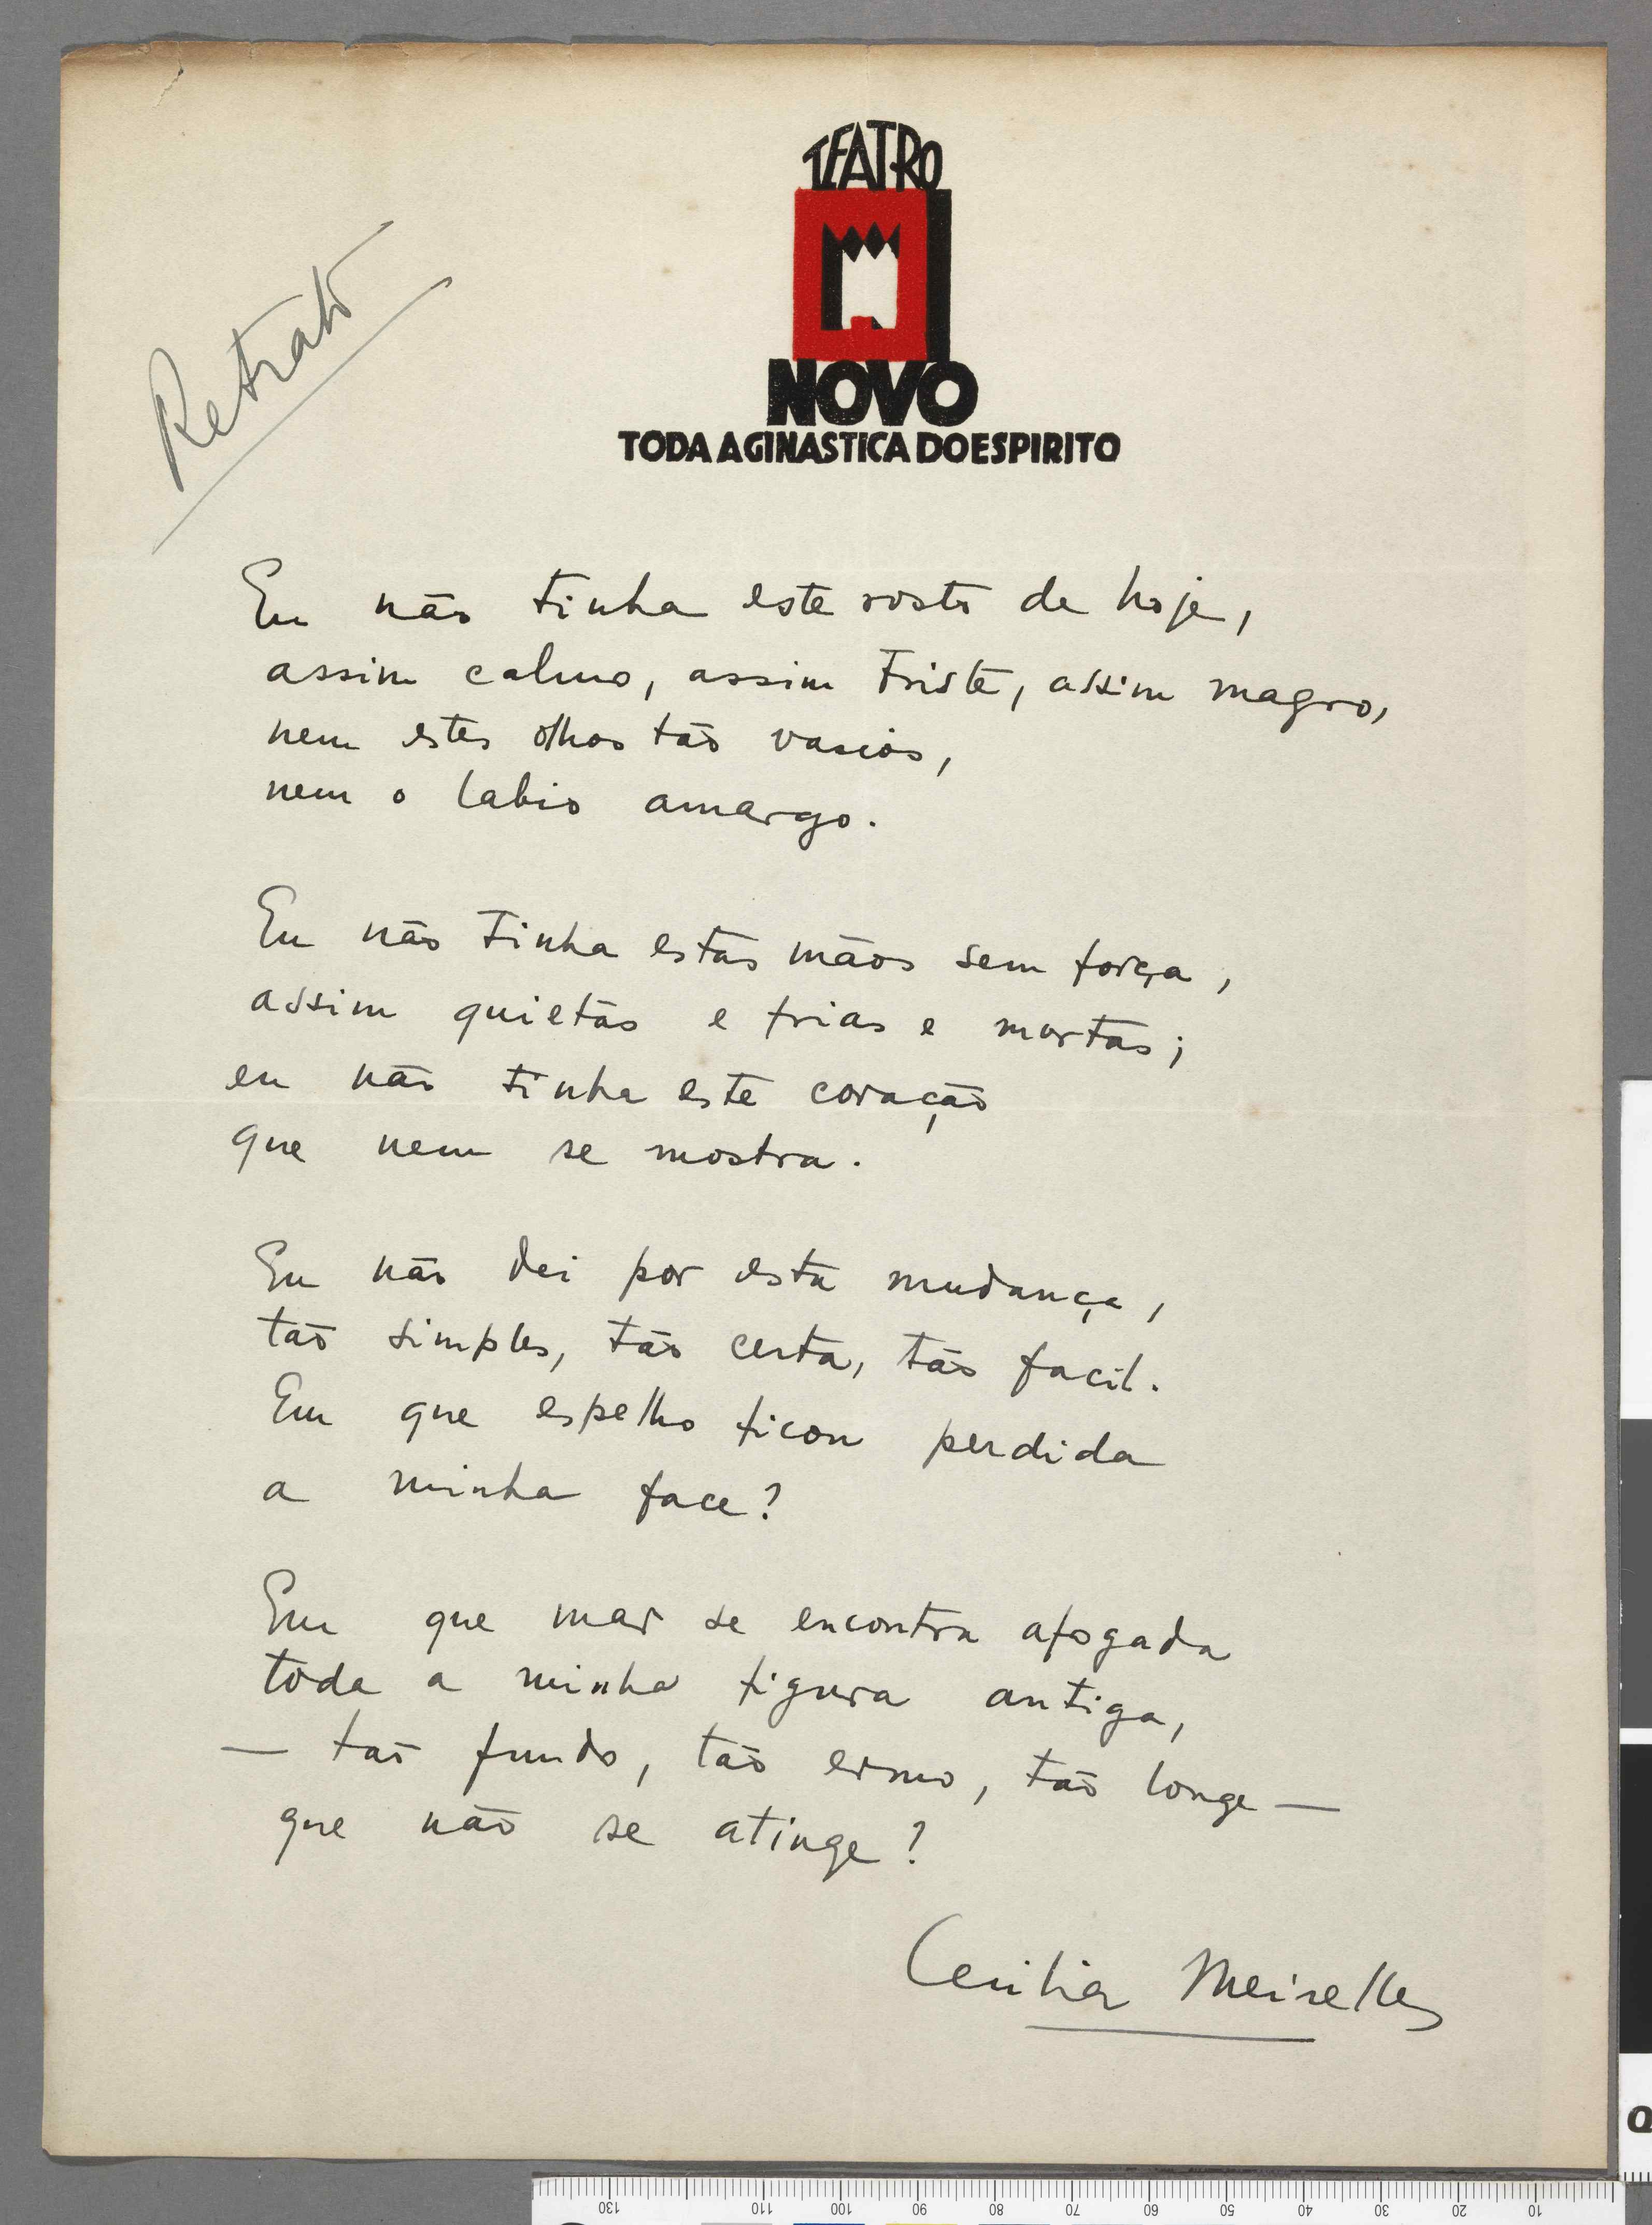 TEATRO
NOVO
TODA A GINASTICA DO ESPIRITO
Retrato
Eu não tinha este rosto de hoje,
assim calmo, assim triste, assim magro,
nem estes olhos tão vasios,
nem o labio amargo.
Eu não tinha estas mãos sem força,
assim quietas e frias e mortas;
eu não tinha este coração
que nem se mostra.
Eu não dei por esta mudança,
tão simples, tão certa, tão facil.
Em que espelho ficou perdida
a minha face?
Em que mar se encontra afogada
toda a minha figura antiga,
— tão fundo, tão ermo, tão longe —
que não se atinge?
Cecilia Meirelles
130 110 100 90 80 70 60 50 40 30 20 10